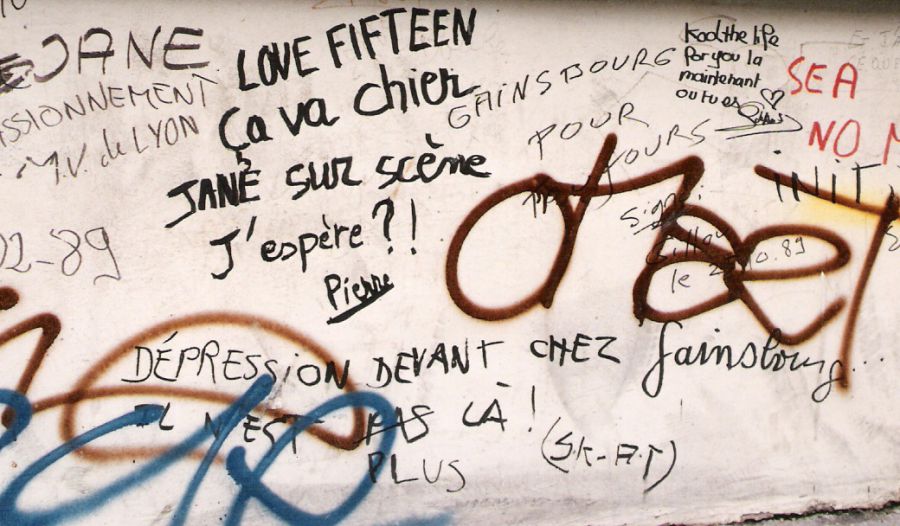 JANE
SSIONNEMENT
M.V. de LYON
02-89
LOVE FIFTEEN
Ça va chier
JANE SUR Scène
J'espère?!
Pierre
GAINSBOURG
POUR
TOUJOURS
signé:
le
.89
Kool the life
for you la
maintenant
ou tu es
SEA
NO M
INIT
DÉPRESSION DEVANT CHEZ Gainsbourg...
IL N'EST PAS LÀ!
PLUS
(SK-AT)